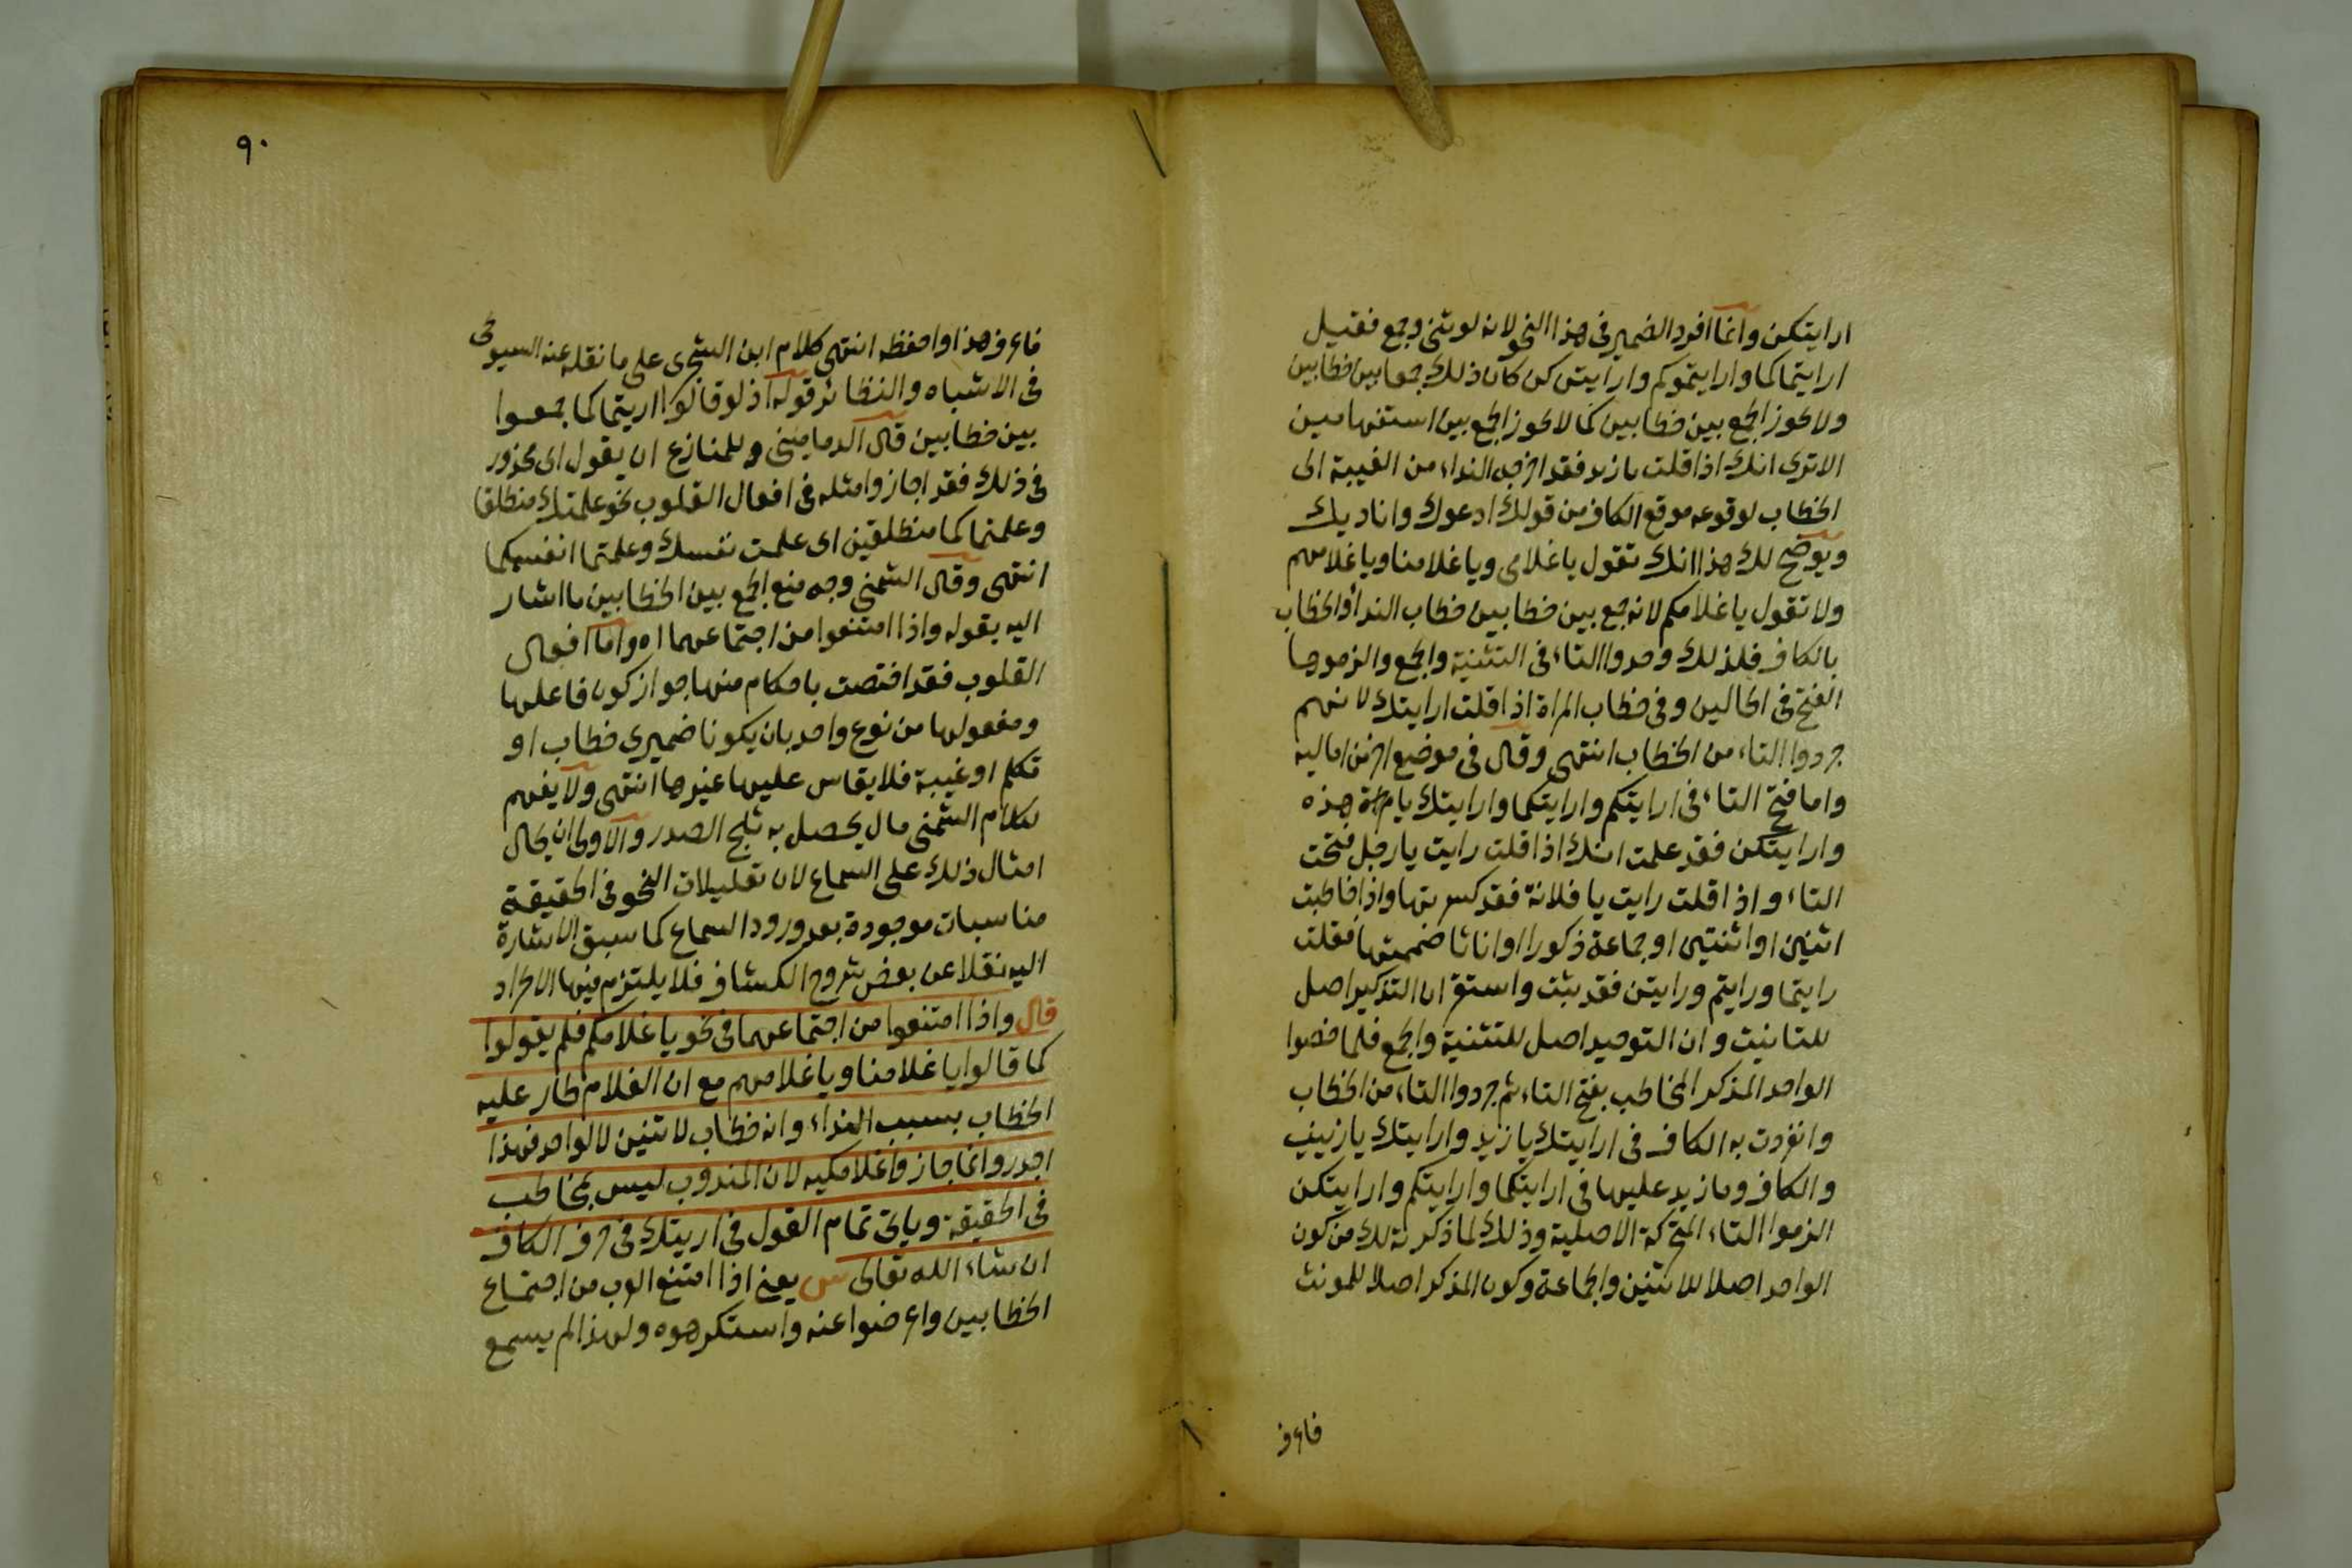 ارايتكن وانما افرد الضمير في هذا النحو لانه لو ثنى وجمع فقيل
ارايتماكما وارايتموكم وارايتن كن كان ذلك جمعا بين خطابين
ولا يجوز الجمع بين خطابين كما لا يجوز الجمع بين استفهامين
الا ترى انك اذا قلت يا زيد فقد اخرجه النداء من الغيبة الى
الخطاب لوقوعه موقع الكاف من قولك ادعوك واناديك
ويوضح لك هذا انك تقول يا غلامي ويا غلامنا ويا غلامهم
ولا تقول يا غلامكم لانه جمع بين خطابين خطاب الندا والخطاب
بالكاف فلذلك وحدوا التاء في التثنية والجمع والزموها
الفتح في الحالين وفي خطاب المراة اذا قلت ارايتك لانهم
جردوا التاء من الخطاب انتهى وقال في موضع اخر من اماليه
واما فتح التاء في ارايتكم وارايتكما وارايتك يا مراة هذه
وارايتكن فقد علمت انك اذا قلت رايت يا رجل فتحت
التاء واذا قلت رايت يا فلانة فقد كسرتها واذا خاطبت
اثنين او اثنتين او جماعة ذكورا او اناثا ضممتها فقلت
رايتما ورايتم ورايتن فقد ثبت واستقر ان التذكير اصل
للتانيث وان التوحيد اصل للتثنية والجمع فلما خصوا
الواحد المذكر المخاطب بفتح التاء ثم جردوا التاء من الخطاب
وانفردت به الكاف في ارايتك يا زيد وارايتك يا زينب
والكاف وما زيد عليها في ارايتكما وارايتكم وارايتكن
الزموا التاء الحركة الاصلية وذلك لما ذكرته لك من كون
الواحد اصلا للاثنين والجماعة وكون المذكر اصلا للمونث
فاعرف
٩٠
فاعرف هذا واحفظه انتهى كلام ابن الشجري على ما نقله عنه السيوطي
في الاشباه والنظائر قوله اذ لو قالوا اريتماكما جمعوا
بين خطابين قال الدماميني وللمنازع ان يقول اي محذور
في ذلك فقد اجازوا مثله في افعال القلوب نحو علمتك منطلقا
وعلمتماكما منطلقين اي علمت نفسك وعلمتما انفسكما
انتهى وقال الشمني وجه منع الجمع بين الخطابين ما اشار
اليه بقوله واذا امتنعوا من اجتماعهما اه واما افعال
القلوب فقد اختصت باحكام منها جواز كون فاعلها
ومفعولها من نوع واحد بان يكونا ضميري خطاب او
تكلم او غيبة فلا يقاس عليها غيرها انتهى ولا يفهم
لكلام الشمني مال يحصل به ثلج الصدر والاولى ان يحال
امثال ذلك على السماع لان تعليلات النحو في الحقيقة
مناسبات موجودة بعد ورود السماع كما سبق الاشارة
اليه نقلا عن بعض شروح الكشاف فلا يلتزم فيها الاطراد
قال واذا امتنعوا من اجتماعهما في نحو يا غلامكم فلم يقولوا
كما قالوا يا غلامنا ويا غلامهم مع ان الغلام طار عليه
الخطاب بسبب النداء وانه خطاب لاثنين لا لواحد فهذا
اجدر وانما جاز واغلامكيه لان المندوب ليس بمخاطب
في الحقيقة وياتي تمام القول في اريتك في حرف الكاف
ان شاء الله تعالى ش يعني اذا امتنع العرب من اجتماع
الخطابين واعرضوا عنه واستكرهوه ولهذا لم يسمع